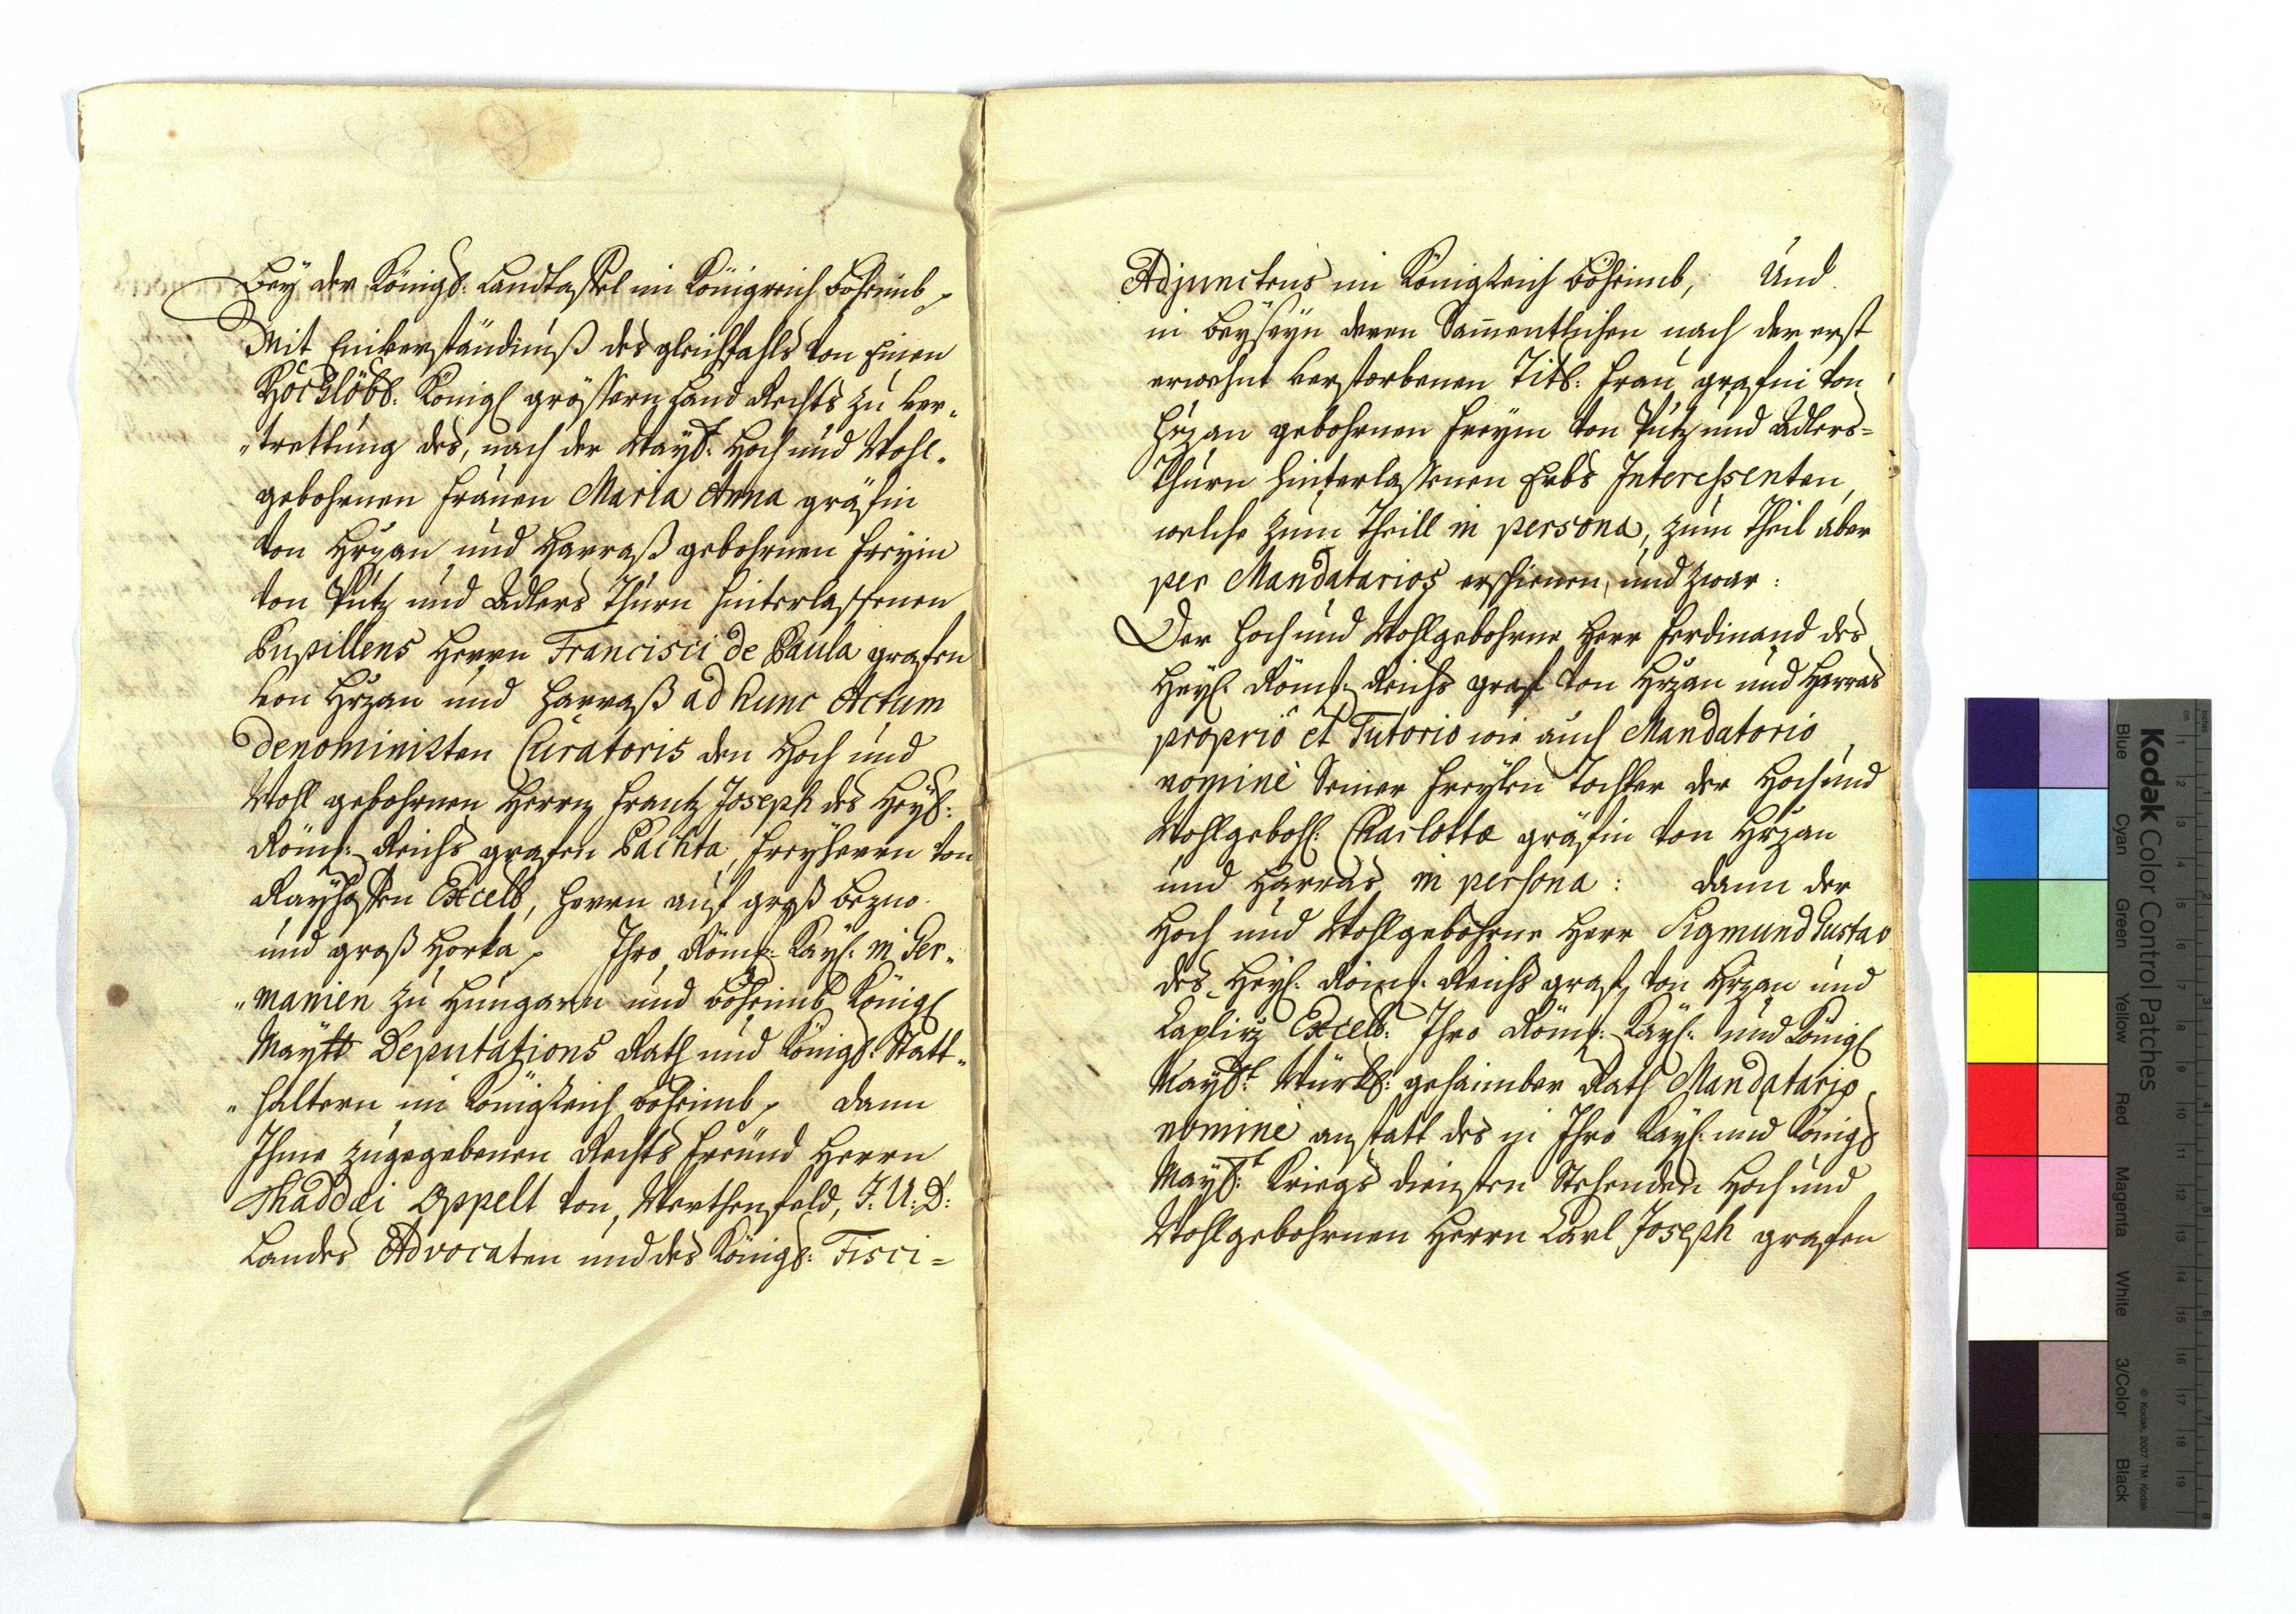 Bey der Königl: Landtaffel im Königreich Böheimb,
Mit Einverständnuß des gleichfahls von Einen
Hochlöbl. Königl größern Land Rechts zu ver„
„trettung des, nach der Mayl: Hoch und Wohl„
gebohrnen Frauen Maria Anna gräfin
von Hržan und Harraß gebohrnen Freyin
von Pütz und Adlers Thurn hinterlassenen
Pupillens Herrn Francisci de Paula grafen
von Hržan und Harraß ad hunc Actum
denominirten Curatoris den Hoch und
Wohl gebohrnen Herrn Frantz Joseph des Heyl:
Röm: Reichs grafen Pachta, Freyherrn von
Rayhofen Excell, Herrn auf groß Bezno
und groß Horka, Ihro Röm: Kayl: in Ger„
„manien zu Hungarn und Böheimb Königl
Maytt Deputations Rath und Königl: Statt„
„haltern im Königreich Böheimb, dann
Ihme zugegebenen Rechts Freünd Herrn
Thaddæi Oppelt von Werthenfeld, J: U: D:
Landes Advocaten und des Königl: Fisci=
Adjunctens im Königreich Böheimb, Und
in Beyseyn deren Samentlichen nach der erst
erwehnt verstorbenen Titl: Frau grafin von
Hržan gebohrnen Freyin von Pütz und Adlers=
Thurn hinterlassenen Erbs Interessenten,
welche zum Theill in persona, zum Theil aber
per Mandatarios erschienen, und zwar:
Der Hoch und Wohlgebohrne Herr Ferdinand des
Heyl: Röm: Reichs graf von Hržan und Harras
proprio et Tutorio wie auch Mandatorio
nomine Seiner Freylen Tochter der Hoch und
Wohlgebohl: Charlotta gräfin von Hržan
und Harras in persona: dann der
Hoch und Wohlgebohrne Herr Sigmund Gustav
des Heyl: Röm: Reichs graf von Hržan und
Caplirz Excell: Ihro Röm: Kayl: und Königl
Mayt: Würkl: geheimber Rath Mandatario
nomine anstatt des in Ihro Kayl: und Königl
Mayt: Kriegs diensten Stehenden Hoch und
Wohlgebohrnen Herrn Carl Joseph grafen
Kodak Color Control Patches
© Kodak, 2007 TM: Kodak
Blue Cyan Green Yellow Red Magenta White 3/Color Black